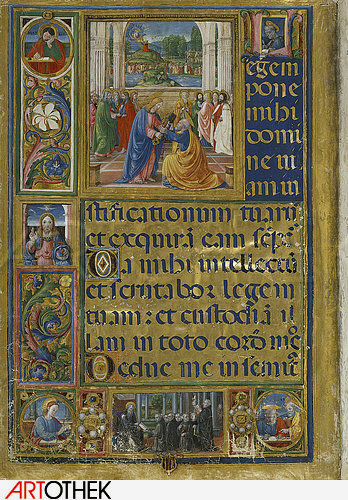 Legem
pone
mihi
domi
ne ui
am iu
stificationum tuarū
et exquirā eam sēp
Da mihi intellectū
et scrutabor legem
tuam: et custodiā il
lam in toto
Deduc me in semitā
ARTOTHEK